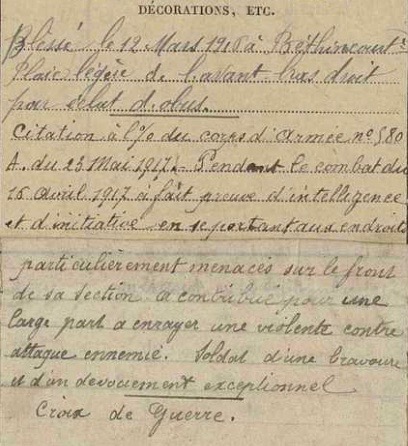 DÉCORATIONS, ETC.
Blessé le 12 Mars 1916 à Béthincourt
Plaie légère de l'avant bras droit
par éclat d'obus.
Citation à l'O/ du corps d'Armée nº 580
A. du 23 Mai 1917. - Pendant le combat du
16 avril 1917 a fait preuve d'intelligence
et d'initiative en se portant aux endroits
particulièrement menacés sur le front
de sa section a contribué pour une
large part a enrayer une violente contre
attaque ennemie. Soldat d'une bravoure
et d'un dévouement exceptionnel
Croix de Guerre.